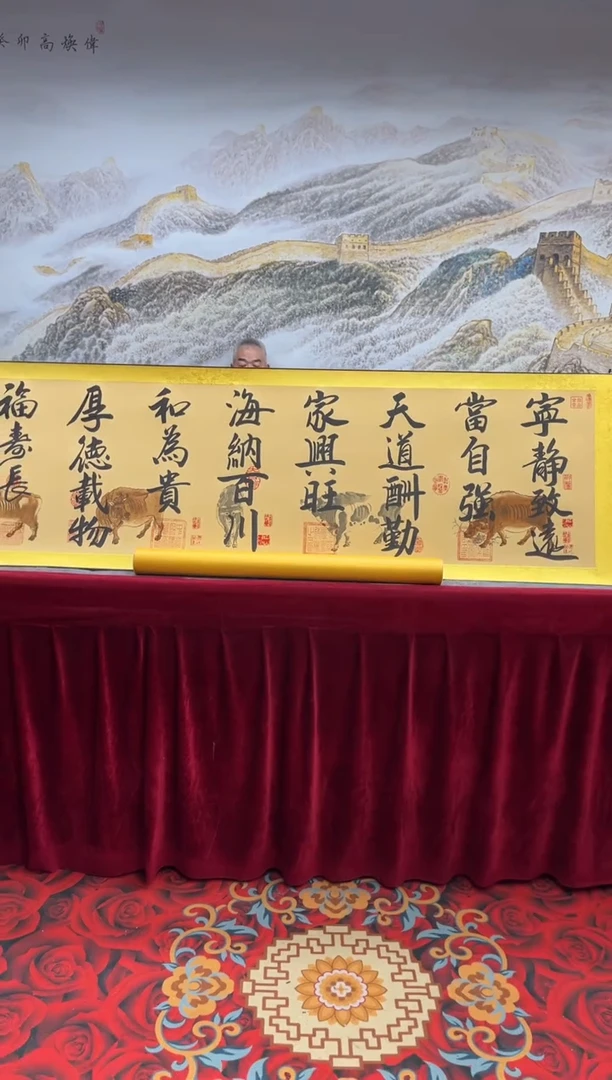 癸卯高煥偉
寧靜致遠
當自強
天道酬勤
家興旺
海納百川
和為貴
厚德載物
福壽長